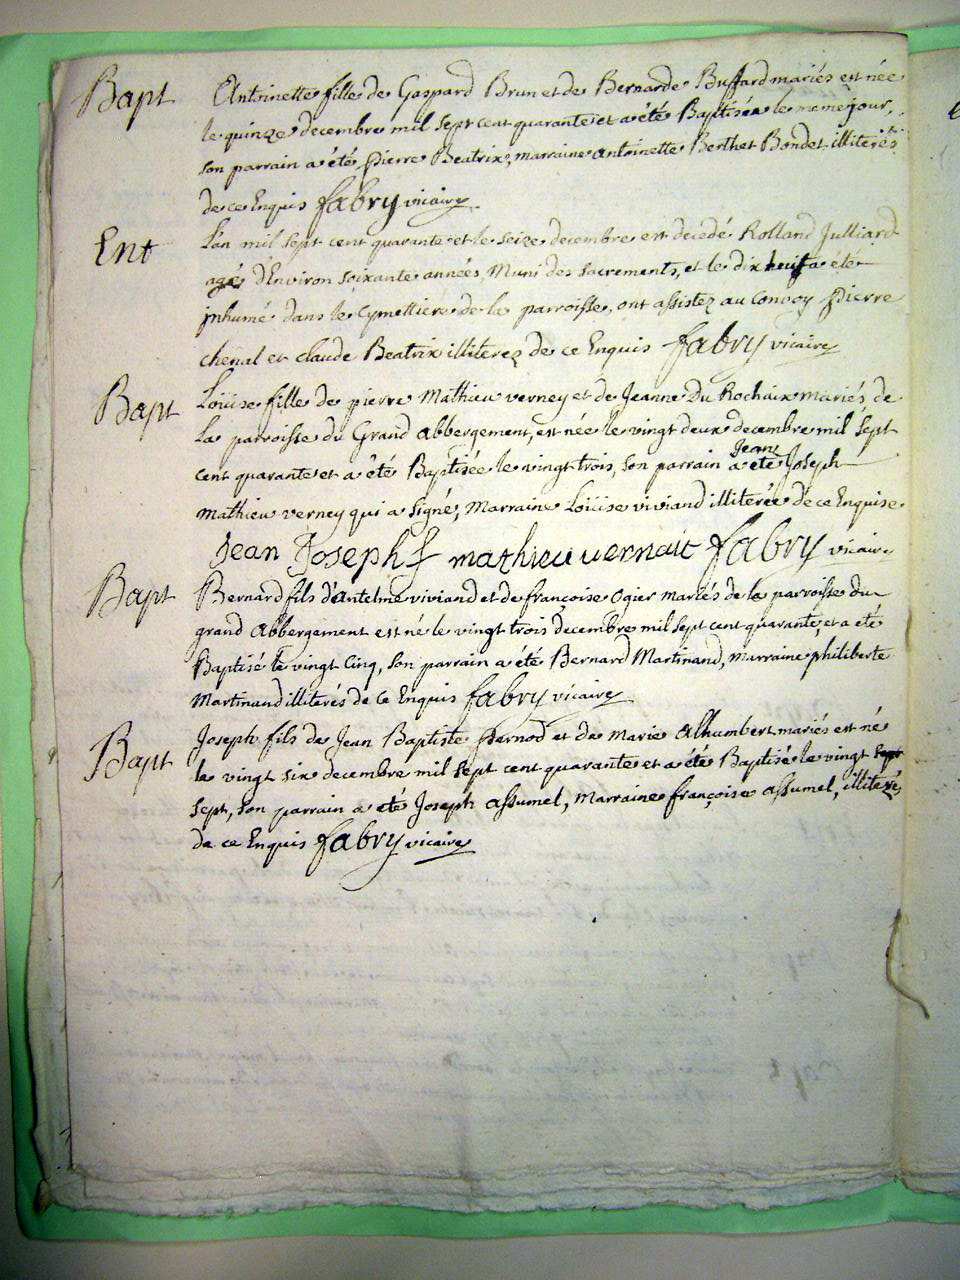 Bapt Antoinette fille de Gaspard Brun et de Bernarde Buffard mariés est née
le quinze decembre mil sept cent quarante et a été Baptisée le meme jour,
son parrain a été pierre Beatrix, marraine antoinette Berthet Bondet illiterés
de ce Enquis fabry vicaire
Ent L'an mil sept cent quarante et le seize decembre est decedé Rolland Julliard
agé d'Environ soixante années Muni des sacrements, et le dix huit a eté
jnhumé dans le cymettiere de la parroisse, ont assistez au convoy pierre
chenal et claude Beatrix illiterez de ce Enquis fabry vicaire
Bapt Loüise fille de pierre Mathieu verney et de Jeanne Du Rochaix mariés de
La parroisse du Grand abbergement, est née le vingt deux decembre mil sept
cent quarante et a été Baptisée le vingt trois, son parrain a été Jean Joseph
Mathieu verney qui a signé, Marraine Loüise viviand illiterée de ce Enquise
Jean Joseph mathieu vernait fabry vicaire
Bapt Bernard fils d'antelme viviand et de françoise Ogier mariés de la parroisse du
grand abbergement est né le vingt trois decembre mil sept cent quarante, et a été
Baptisé le vingt cinq, son parrain a été Bernard Martinand, marraine philiberte
Martinand illiterés de ce Enquis fabry vicaire
Bapt Joseph fils de Jean Baptiste pernod et de Marie alhumbert mariés est né
le vingt six decembre mil sept cent quarante et a été Baptisé le vingt sept
sept, son parrain a eté Joseph assumel, Marraine françoise assumel, illiterés
de ce Enquis fabry vicaire